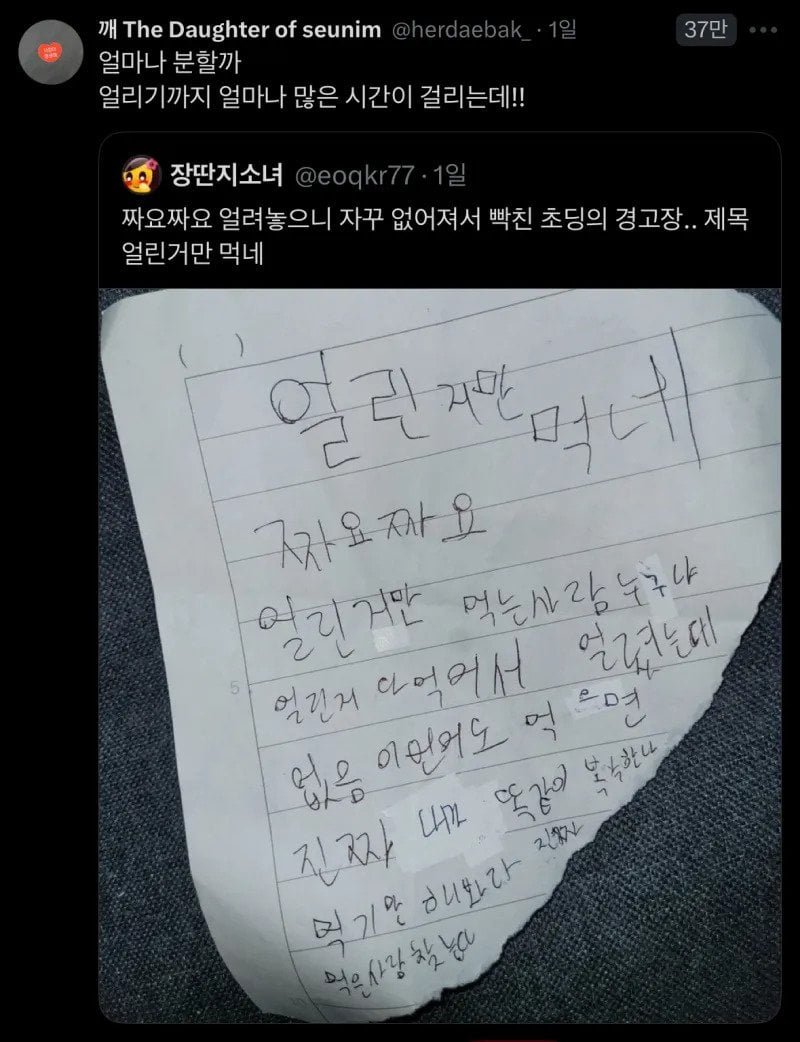 깨 The Daughter of seunim @herdaebak_ · 1일
37만
얼마나 분할까
얼리기까지 얼마나 많은 시간이 걸리는데!!
장딴지소녀 @eoqkr77 · 1일
짜요짜요 얼려놓으니 자꾸 없어져서 빡친 초딩의 경고장.. 제목
얼린거만 먹네
( )
얼린거만 먹네
짜요짜요
얼린거만 먹는사람 누구냐
5
얼린거 다먹어서 얼렸는데
없음 이번에도 먹으면
진짜 내가 똑같이 복수한다
먹기만 해봐라 진짜
먹은사람 찾는다